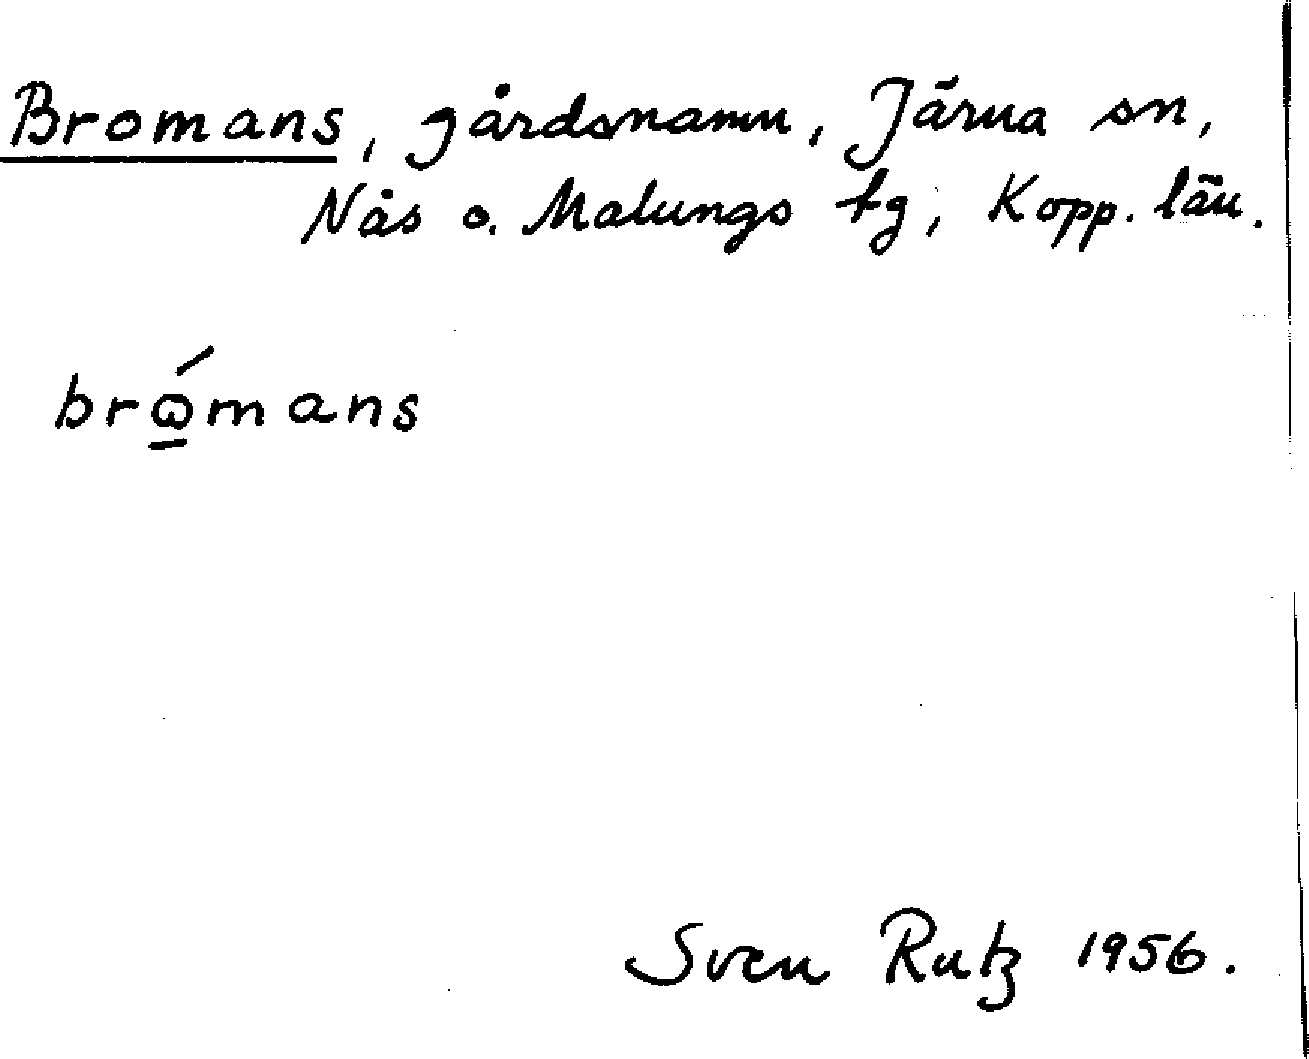 Bromans, gårdsnamn, Järna sn,
Nås o. Malungs tg, Kopp. län.
brώ̱mans
Sven Rutz 1956.